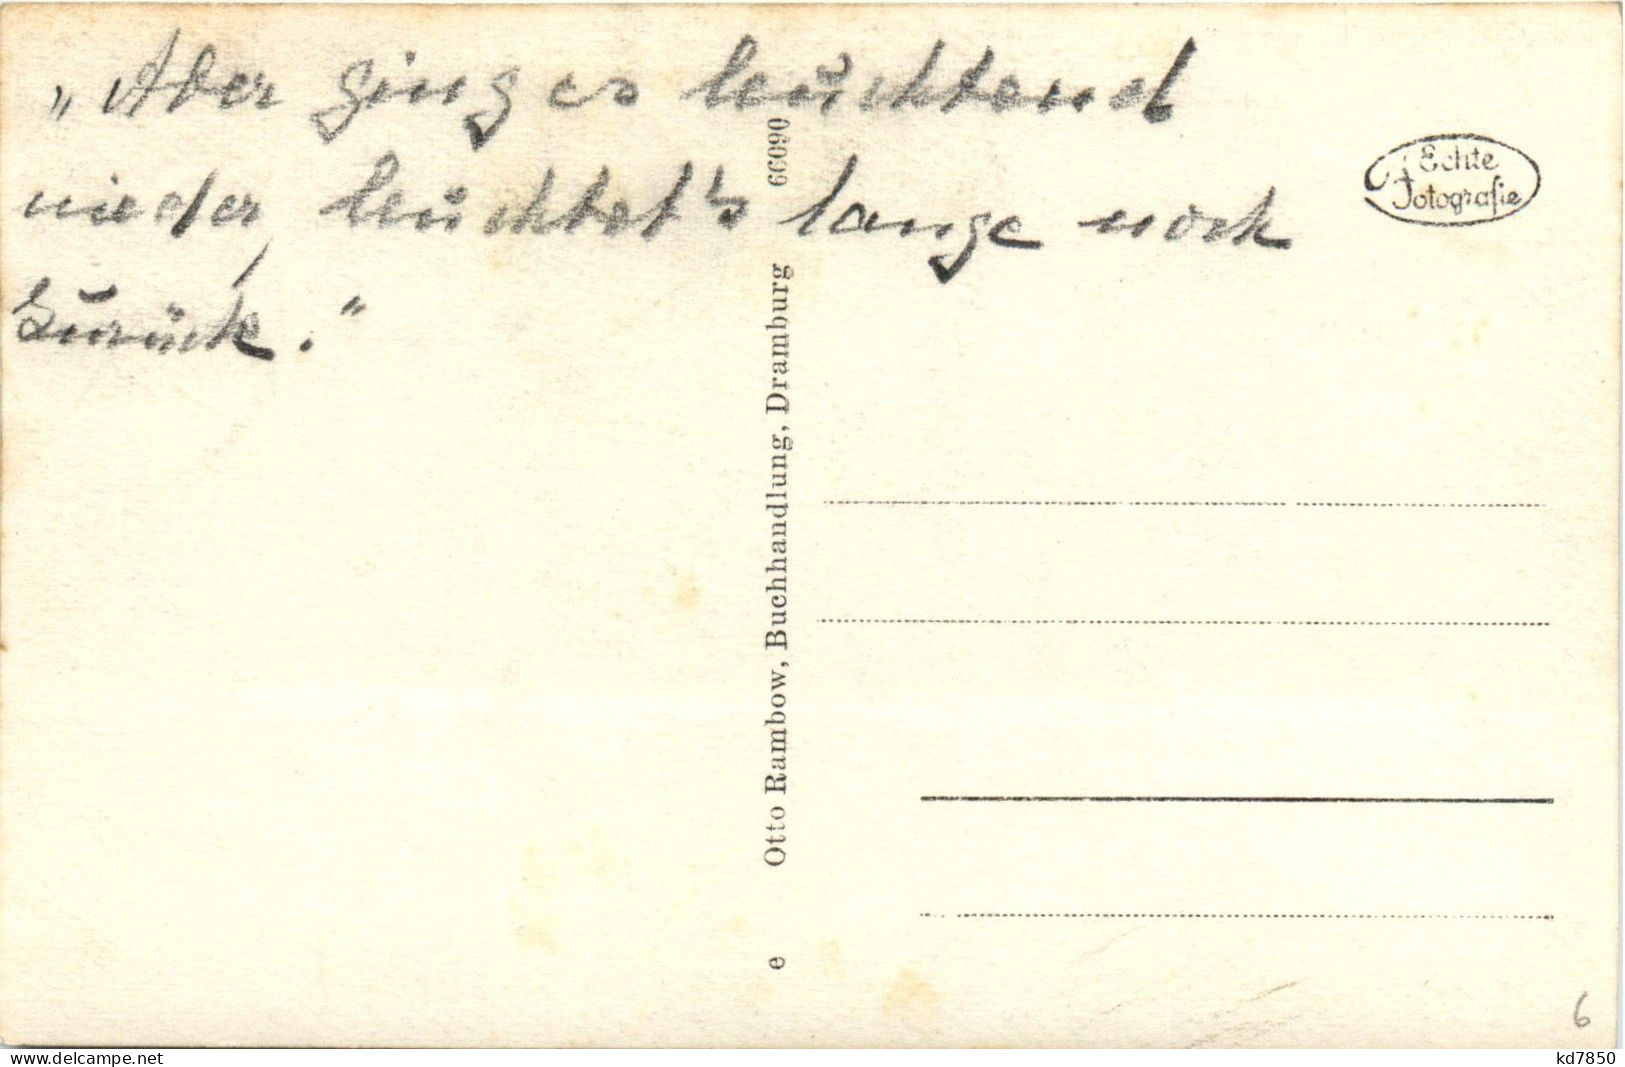 „Aber ging es leuchtend
nieder, leuchtet's lange noch
zurück.“
Echte
Fotografie
Otto Rambow, Buchhandlung, Dramburg 66090
e
6
kd7850
www.delcampe.net